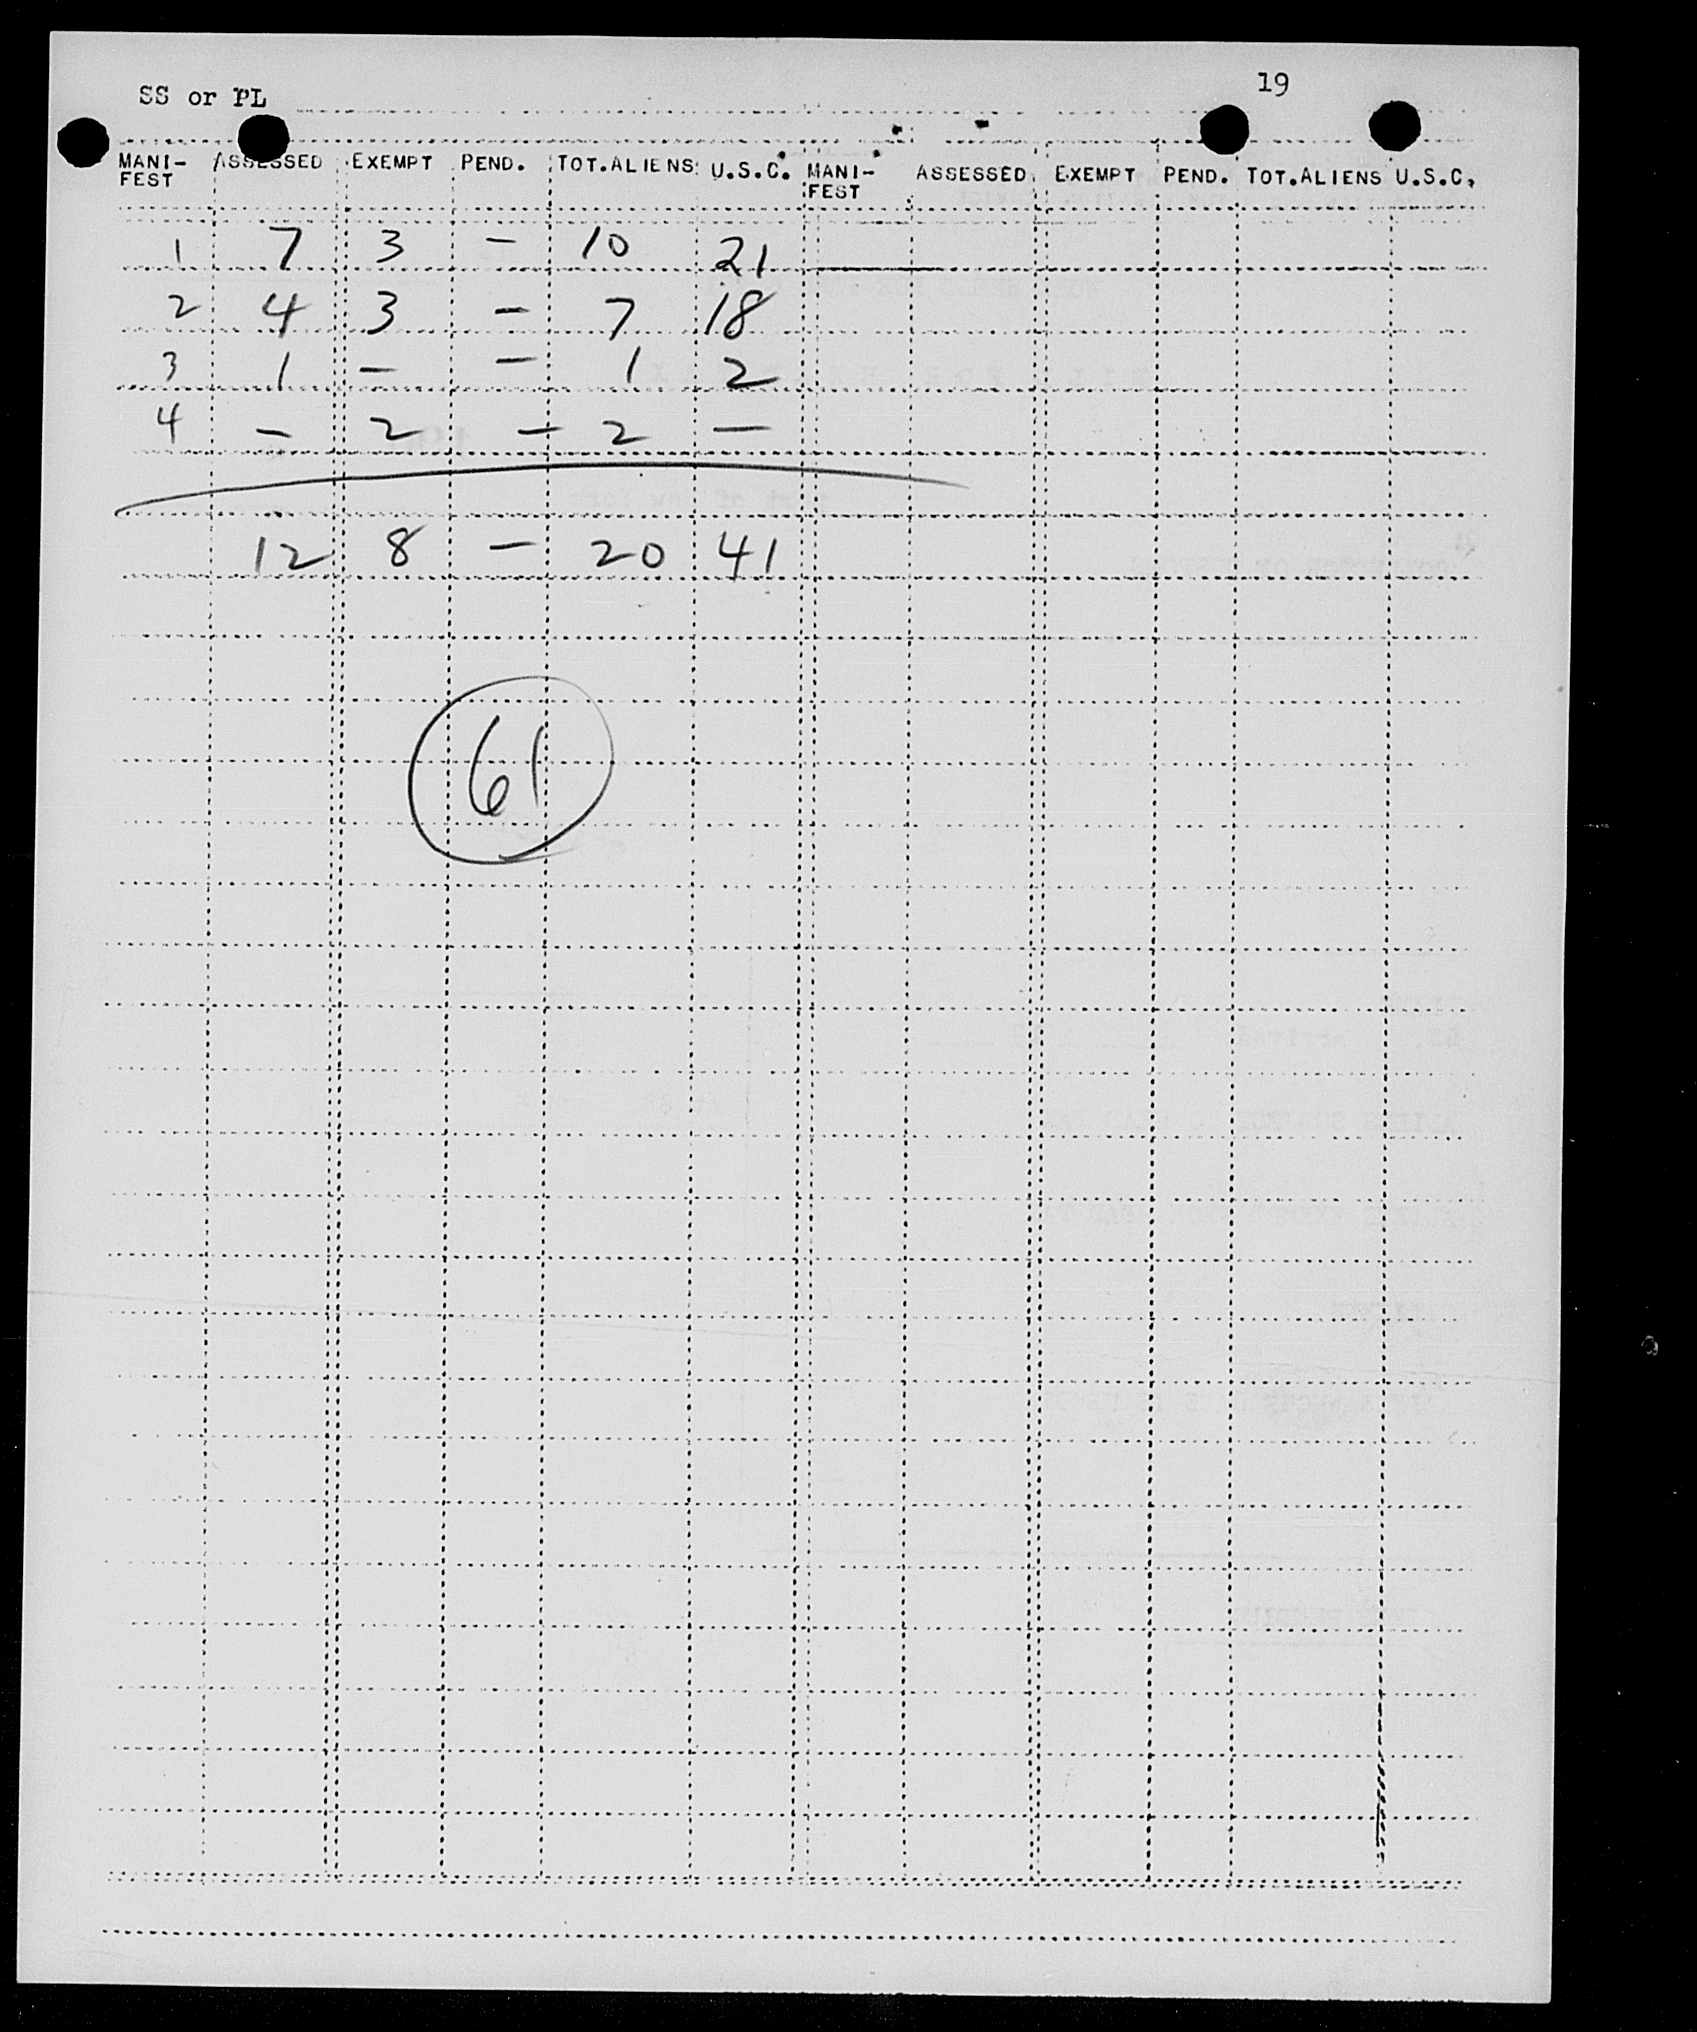 19
SS or PL
MANI- ASSESSED EXEMPT PEND. TOT.ALIENS U.S.C. MANI- ASSESSED EXEMPT PEND. TOT.ALIENS U.S.C.
FEST FEST
1 7 3 - 10 21
2 4 3 - 7 18
3 1 - - 1 2
4 - 2 - 2 -
12 8 - 20 41
61